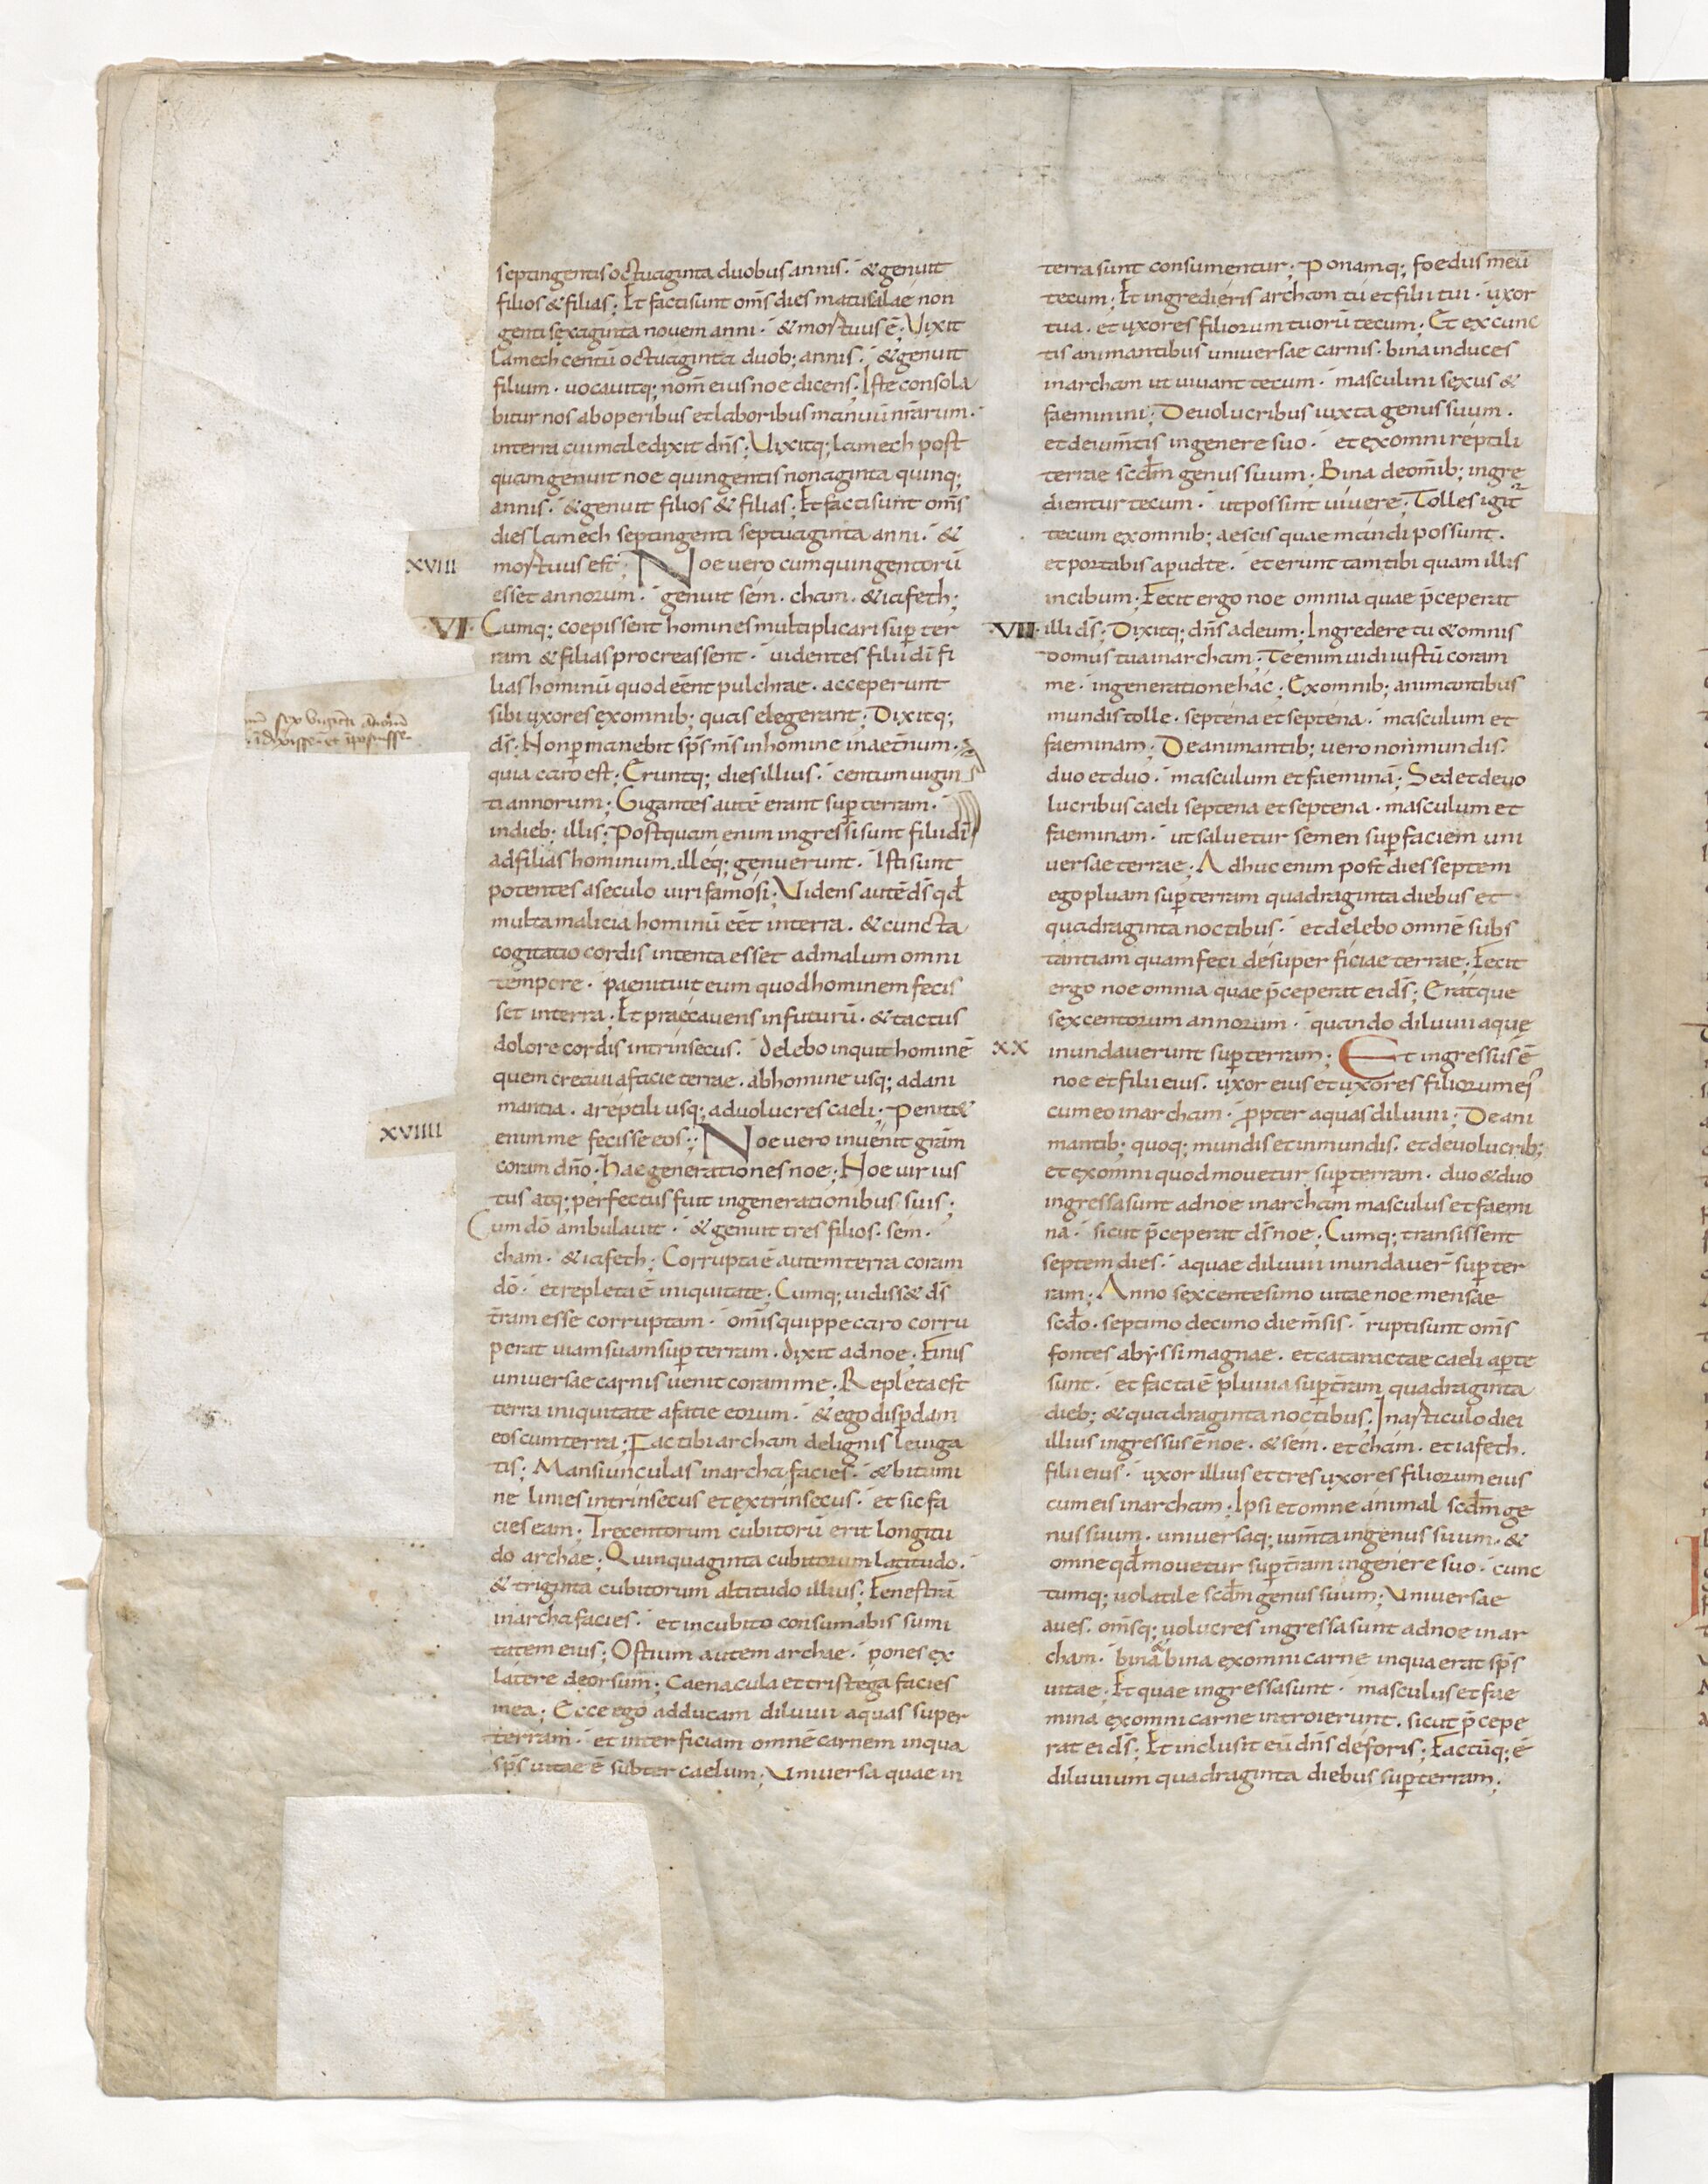 septingentis octuaginta duobus annis. & genuit
filios & filias; Et facti sunt om̄s dies matusalae non
genti sexaginta nouem anni. & mortuus ē; Vixit
lamech centū octuaginta duob; annis. & genuit
filium. uocauitq; nom̄ eius noe dicens; Iste consola
bitur nos ab operibus et laboribus manuū nr̄arum.
in terra cui maledixit dn̄s; Vixitq; lamech post
quam genuit noe quingentis nonaginta quinq;
annis. & genuit filios & filias; Et facti sunt om̄s
dies lamech septingenti septuaginta anni. &
XVIII mortuus est; Noe uero cum quingentorū
esset annorum. genuit sem. cham. & iafeth;
VI. Cumq; coepissent homines multiplicari sup̄ ter
ram & filias procreassent. uidentes filii dī fi
lias hominū quod eēnt pulchrae. acceperunt
sibi uxores ex omnib; quas elegerant; Dixitq;
ds̄; Non p̄manebit sp̄s ms̄ in homine in aet̄num.
quia caro est; Eruntq; dies illius. centum uigin
ti annorum; Gigantes autē erant sup̄ terram.
in dieb; illis; Postquam enim ingressi sunt filii dī
ad filias hominum. illeq; genuerunt. Isti sunt
potentes a seculo uiri famosi; Videns autē ds̄ qd̄
multa malicia hominū eēt in terra. & cuncta
cogitatio cordis intenta esset ad malum omni
tempore. paenituit eum quod hominem fecis
set in terra; Et praecauens in futurū. & tactus
dolore cordis intrinsecus. delebo inquit hominē
quem creaui a facie terrae. ab homine usq; ad ani
mantia. a reptili usq; ad uolucres caeli; Penit&
XVIIII enim me fecisse eos; Noe uero inuenit grām
coram dn̄o; Hae generationes noe; Noe uir ius
tus atq; perfectus fuit in generationibus suis;
Cum dō ambulauit. & genuit tres filios. sem.
cham. & iafeth; Corrupta ē autem terra coram
dō. et repleta ē iniquitate; Cumq; uidiss& ds̄
t̄ram esse corruptam. omīs quippe caro corru
perat uiam suam sup̄ terram. dixit ad noe. Finis
uniuersae carnis uenit coram me. Repleta est
terra iniquitate a facie eorum. & ego disp̄dam
eos cum terra; Fac tibi archam de lignis leuiga
tis; Mansiunculas in archa facies. & bitumi
ne linies intrinsecus et extrinsecus. et sic fa
cies eam; Trecentorum cubitorū erit longitu
do archae; Quinquaginta cubitorum latitudo.
& triginta cubitorum altitudo illius; Fenestrā
in archa facies. et in cubito consumabis sumi
tatem eius; Ostium autem archae. pones ex
latere deorsum; Caenacula et tristega facies
in ea; Ecce ego adducam diluuii aquas super
terram. et interficiam omnē carnem in qua
sp̄s uitae ē subter caelum; Vniuersa quae in
terra sunt consumentur; Ponamq; foedus meū
tecum; Et ingredieris archam tu et filii tui. uxor
tua. et uxores filiorum tuorū tecum; Et ex cunc
tis animantibus uniuersae carnis. bina induces
in archam ut uiuant tecum. masculini sexus &
faeminini; De uolucribus iuxta genus suum.
et de ium̄tis in genere suo. et ex omni reptili
terrae scdm̄ genus suum; Bina de om̄ib; ingre
dientur tecum. ut possint uiuere; Tolles igit
tecum ex omnib; aescis quae mandi possunt.
et portabis apud te. et erunt tam tibi quam illis
in cibum; Fecit ergo noe omnia quae p̄ceperat
VII. illi ds̄; Dixitq; dn̄s ad eum; Ingredere tu & omnis
domus tua in archam; Te enim uidi iustū coram
me. in generatione hac; Ex omnib; animantibus
mundis tolle. septena et septena. masculum et
faeminam; De animantib; uero non mundis.
duo et duo. masculum et faeminā; Sed et de uo
lucribus caeli septena et septena. masculum et
faeminam. ut saluetur semen sup̄ faciem uni
uersae terrae; Adhuc enim post dies septem
ego pluam sup̄ terram quadraginta diebus et
quadraginta noctibus. et delebo omnē subs
tantiam quam feci de superficiae terrae; Fecit
ergo noe omnia quae p̄ceperat ei ds̄; Eratque
sexcentorum annorum. quando diluuii aquę
XX inundauerunt sup̄ terram; Et ingressus ē
noe et filii eius. uxor eius et uxores filiorum ei
cum eo in archam. p̄pter aquas diluuii; De ani
mantib; quoq; mundis et inmundis. et de uolucrib;
et ex omni quod mouetur sup̄ terram. duo & duo
ingressa sunt ad noe in archam masculus et faemi
na. sicut p̄ceperat ds̄ noe; Cumq; transissent
septem dies. aquae diluuii inundauer̄ sup̄ ter
ram; Anno sexcentesimo uitae noe mensae
scdo. septimo decimo die m̄sis. rupti sunt om̄s
fontes abyssi magnae. et cataractae caeli ap̄te
sunt. et facta ē pluuia sup̄ t̄ram quadraginta
dieb; & quadraginta noctibus; In articulo diei
illius ingressus ē noe. & sem. et cham. et iafeth.
filii eius. uxor illius et tres uxores filiorum eius
cum eis in archam; Ipsi et omne animal scdm̄ ge
nus suum. uniuersaq; ium̄ta in genus suum. &
omne qd̄ mouetur sup̄ t̄ram in genere suo. cunc
tumq; uolatile scdm̄ genus suum; Vniuersae
aues. om̄sq; uolucres ingressa sunt ad noe in ar
cham. bina & bina ex omni carne in qua erat sp̄s
uitae; Et quae ingressa sunt. masculus et fae
mina ex omni carne introierunt. sicut p̄cepe
rat ei ds̄; Et inclusit eū dn̄s deforis; Factūq; ē
diluuium quadraginta diebus sup̄ terram.